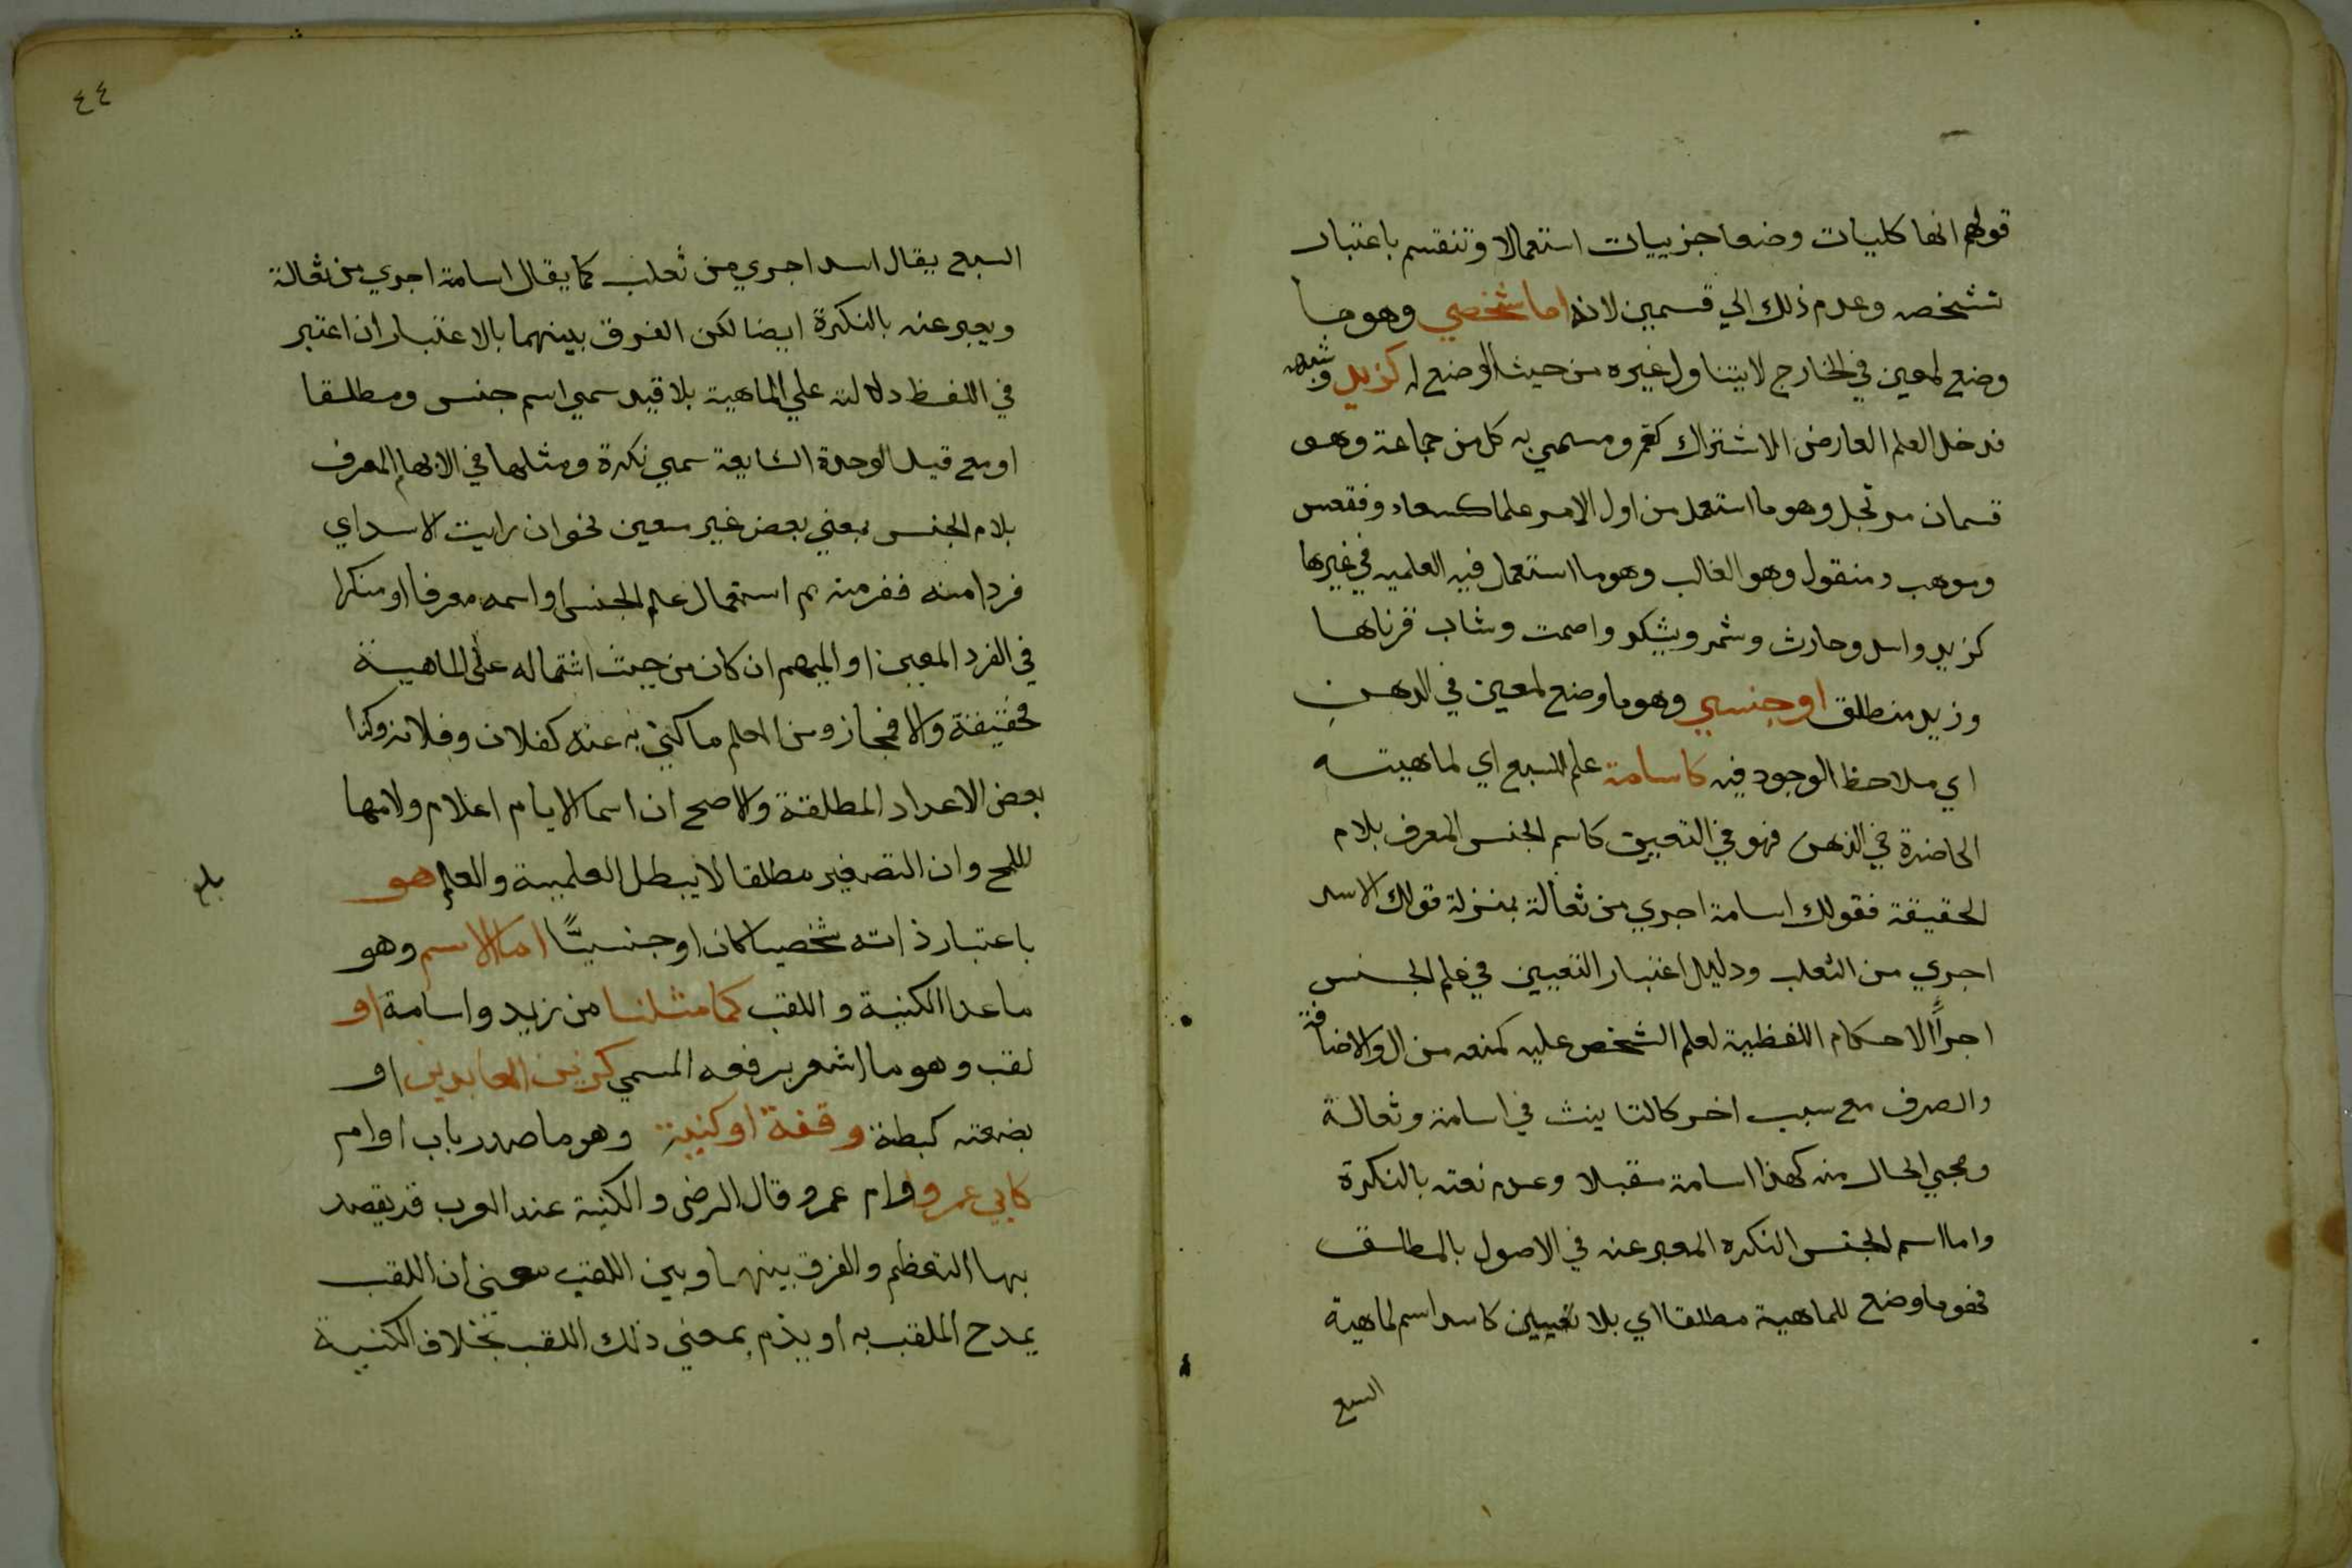 قولهم انها كليات وضعا جزييات استعمالا وتنقسم باعتبار
تشخصه وعدم ذلك الي قسمين لانه اما شخصي وهو ما
وضع لمعين في الخارج لا يتناول غيره من حيث الوضع له كزيد و
فدخل العلم العارض الاشتراك كعمرو مسمي به كل من جماعة وهو
قسمان مرتجل وهو ما استعمل من اول الامر علما كسعاد وفقعس
وموهب ومنقول وهو الغالب وهو ما استعمل فيه العلميه في غيرها
كزيد واسد وحارث وشمر ويشكر واصمت وشاب قرناها
وزيد منطلق او جنسي وهو ما وضع لمعين في الدهن
اي ملاحظ الوجود فيه كاسامة علم للسبع اي لماهيته
الحاضرة في الذهن فهو في التعيين كاسم الجنس المعرف بلام
الحقيقة فقولك اسامة اجري من ثعالة بمنزلة قولك الاسد
اجري من الثعلب ودليل اعتبار التعيين في علم الجنس
اجراً الاحكام اللفظية لعلم الشخص عليه كمنعه من ال والاضافة
والصرف مع سبب اخر كالتانيث في اسامة وثعالة
ومجي الحال منه كهذا اسامة مقبلا وعدم نعته بالنكرة
واما اسم الجنس النكره المعبر عنه في الاصول بالمطلق
فهو ما وضع للماهية مطلقا اي بلا تعيين كاسد اسم لماهية
السبع
٤٤
السبع يقال اسد اجري من ثعلب كما يقال اسامة اجري من ثعالة
ويعبر عنه بالنكرة ايضا لكن الفرق بينهما بالاعتبار ان اعتبر
في اللفظ دلالته علي الماهية بلا قيد سمي اسم جنس ومطلقا
او مع قيد الوحدة الشايعة سمي نكرة ومثلها في الابهام المعرف
بلام الجنس بمعني بعض غير معين نحو ان رايت الاسد اي
فردا منه ففر منه ثم استعمال علم الجنس او اسمه معرفا او منكرا
في الفرد المعين او المبهم ان كان من حيث اشتماله على الماهية
فحقيقة والا فمجاز ومن العلم ما كني به عنه كفلان وفلانه وكذا
بعض الاعداد المطلقة والاصح ان اسما الايام اعلام ولامها
للمح وان التصغير مطلقا لا يبطل العلمية والعلم هو
بلغ
باعتبار ذاته شخصيا كان او جنسيًّا اما الاسم وهو
ما عدا الكنية واللقب كما مثلنا من زيد واسامة او
لقب وهو ما اشعر برفعه المسمي كزين العابدين او
بضعته كبطة وقفة او كنية وهو ما صدر باب او ام
كابي عمرو وام عمرو قال الرضى والكنية عند العرب قد يقصد
بها التعظم والفرق بينهما وبين اللقب معنى ان اللقب
يمدح الملقب به او يذم بمعني ذلك اللقب بخلاف الكنية